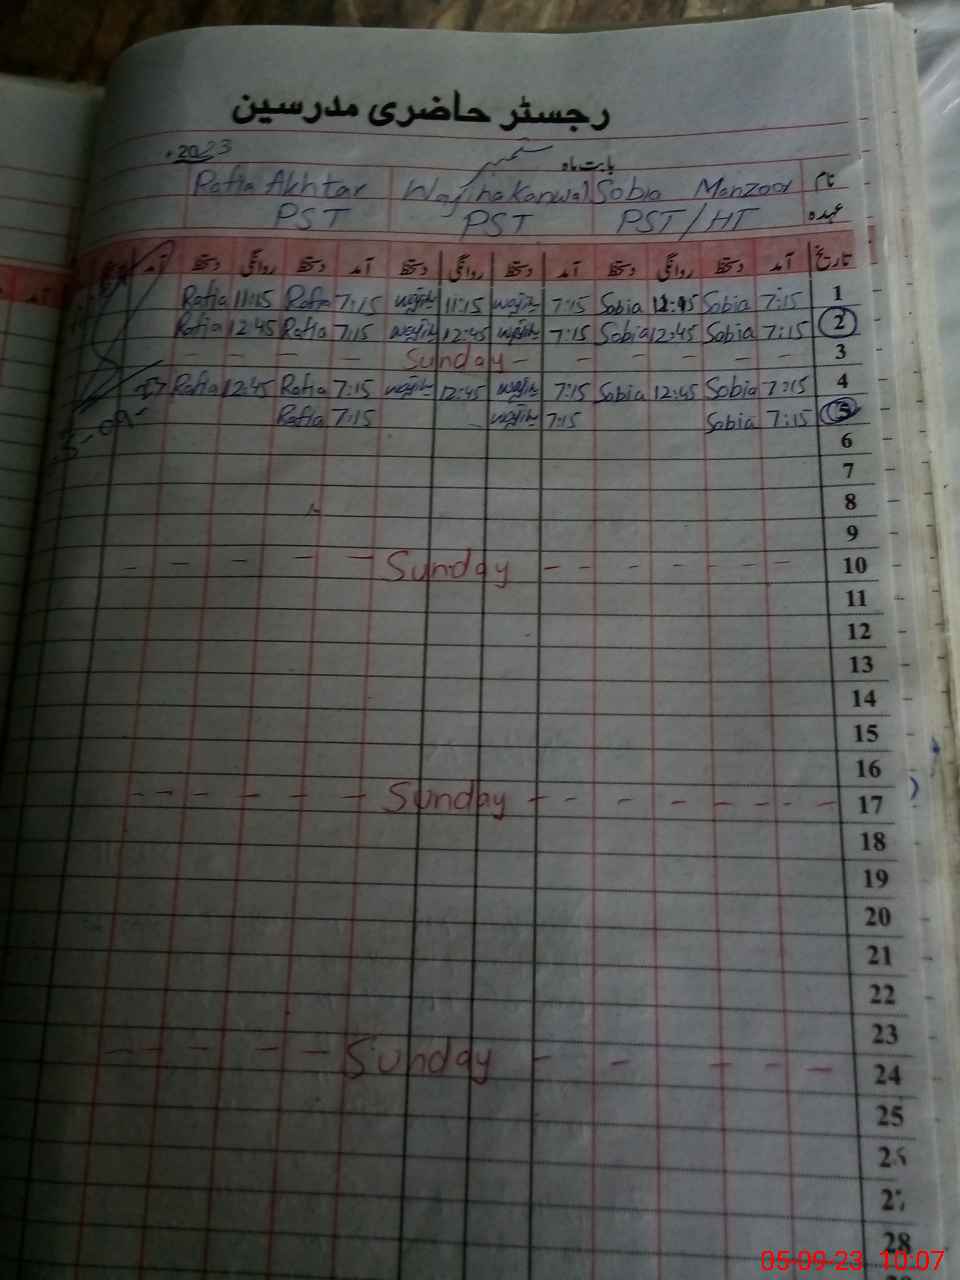 رجسٹر حاضری مدرسین
بابت ماہ ستمبر 2023ء
نام Sobia Manzoor Wajiha Kanwal Rafia Akhtar
عہدہ PST/HT PST PST
تاریخ آمد دستخط روانگی دستخط آمد دستخط روانگی دستخط آمد دستخط روانگی دستخط آمد
1 7:15 Sobia Sobia 7:15 wajiha 11:15 wajiha 7:15 Rafia 11:15 Rafia
2 7:15 Sobia 12:45 Sobia 7:15 wajiha 12:45 wajiha 7:15 Rafia 12:45 Rafia
3 - - - - - Sunday - - - -
4 7:15 Sobia 12:45 Sobia 7:15 wajiha 12:45 wajiha 7:15 Rafia 12:45 Rafia
5 7:15 Sobia 7:15 wajiha 7:15 Rafia
5-09-
6
7
8
9
10 - - - - - - Sunday - - - - -
11
12
13
14
15
16
17 - - - - - - - Sunday - - - - - -
18
19
20
21
22
23
24 - - - - - Sunday - - - - -
25
26
27
28
05-09-23 10:07